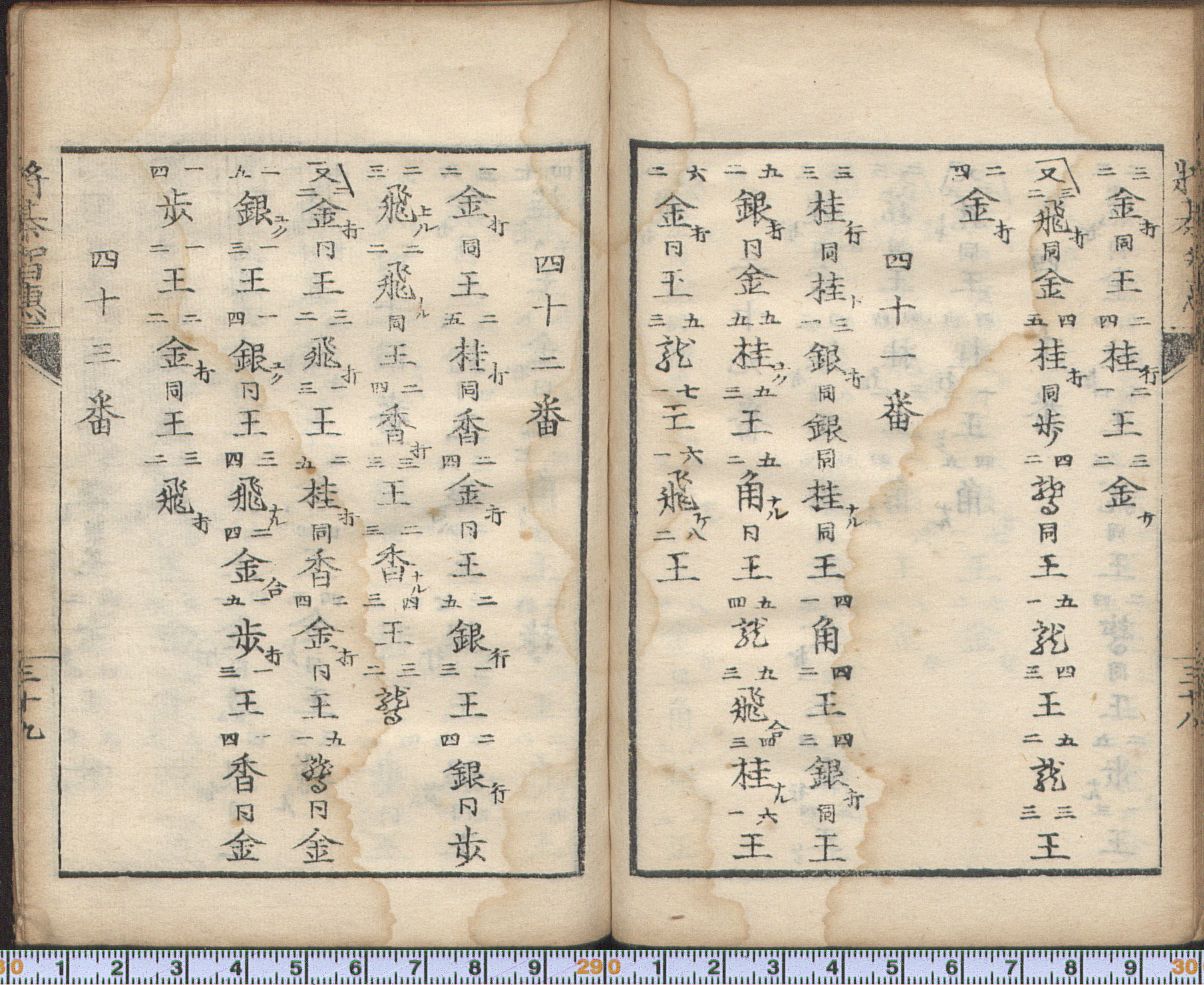 三二金打同王二四桂行二一王三二金
又三二飛打同金四五桂打同歩四二鷲同王五一龍四三王五二龍三三王
二四金打
四十一番
三三桂行同桂三一銀打同銀同桂ナル同王四一角四二王四三銀打同王
九二銀打同金九五桂ユク五三王五二角ナル同王五四龍九三飛合四三桂ナル六一王
六二金打同王九三龍七一王六一飛二王
三十八
四十二番
三二金打同王二五桂打同香二四金打同王二五銀行一三王二四銀行同歩
二三飛上ル二二飛ル同王二四香打三三王二三香ナル四三王三二鷲
又二二金打同王三二飛打一三王二五桂打同香二四金打同王九一鷲同金
一九銀ユク一三王一四銀ユク同王三四飛ナル二四金合一五歩打一三王一四香同金
一四歩一二王二二金打同王三二飛打
四十三番
将棊智惠
三十九
0 1 2 3 4 5 6 7 8 9 29 0 1 2 3 4 5 6 7 8 9 30